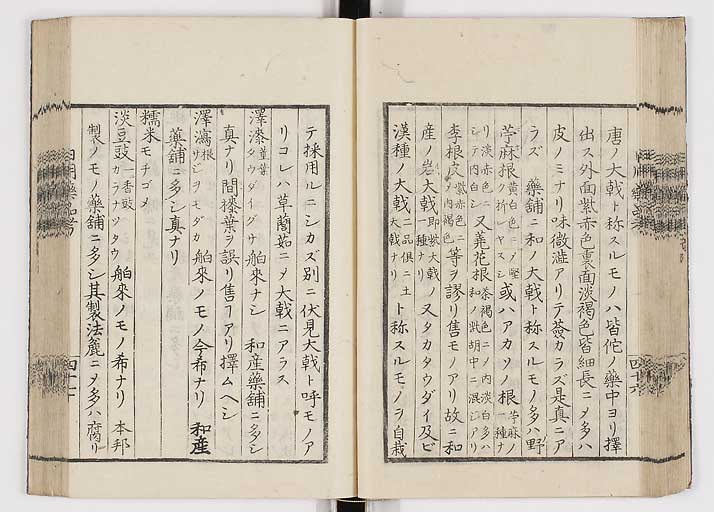 唐ノ大戟ト称スルモノハ皆佗ノ藥中ヨリ擇
出ス外面紫赤色裏面淡褐色皆細長ニメ多ハ
皮ノミナリ味微澁アリテ薟カラズ是真ニア
ラズ 藥舗ニ和ノ大戟ト称スルモノ多ハ野
苧麻根黄白色ニメ堅ク折レヤスシ或ハアカソノ根苧麻ノ一種ナリ淡赤色ニメ内白シ
又蕘花根茶褐色ニメ内淡白多ハ和ノ柴胡中ニ混ジアリ
李根皮紫赤色ニメ内褐色等ヲ謬リ售モノアリ故ニ和
産ノ岩大戟即紫大戟ノ一種ナリ又タカタウダイ及ビ
漢種ノ大戟二品俱ニ土大戟ナリト称スルモノヲ自栽
テ採用ルニシカズ別ニ伏見大戟ト呼モノア
リコレハ草䕡茹ニメ大戟ニアラス
澤漆莖葉タウダイグサ 舶來ナシ 和産藥舗ニ多シ
真ナリ間𣜜葉ヲ誤リ售フアリ擇ムヘシ
澤瀉根サジヲモダカ 舶來ノモノ今希ナリ 和産
藥舗ニ多シ真ナリ
糯米モチゴメ
淡豆豉一名香豉カラナツタウ 舶來ノモノ希ナリ 本邦
製ノモノ藥舗ニ多シ其製法麁ニメ多ハ腐リ
四十六
四十七